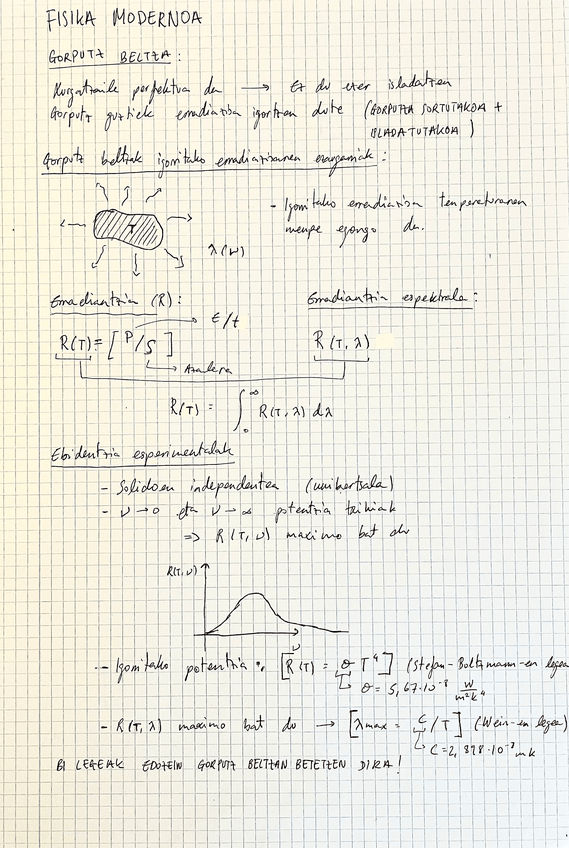 FISIKA MODERNOA
GORPUTZ BELTZA:
Xurgatzaile perfektua da → Ez du ezer isladatzen
Gorputz guztiek erradiazioa igortzen dute (GORPUTZA SORTUTAKOA +
ISLADATUTAKOA)
Gorputz beltzak igorritako erradiazioaren ezaugarriak:
T
λ(ν)
- Igorritako erradiazioa tenperaturaren
menpe egongo da.
Erradiantzia (R):
Erradiantzia espektrala:
E/t
R(T) = [P/S]
R(T,λ)
Azalera
R(T) = ∫₀^∞ R(T,λ) dλ
Ebidentzia esperimentalak
- Solidoen independentea (unibertsala)
- ν→0 eta ν→∞ potentzia txikiak
⇒ R(T,ν) maximo bat du
R(T,ν)
ν
- Igorritako potentzia: [R(T) = σ T⁴] (Stefan-Boltzmann-en legea
σ = 5,67·10⁻⁸ W/m²K⁴
- R(T,λ) maximo bat du → [λmax = C/T] (Wein-en legea)
C = 2,898·10⁻³ mK
BI LEGEAK EDOZEIN GORPUTZ BELTZAN BETETZEN DIRA!